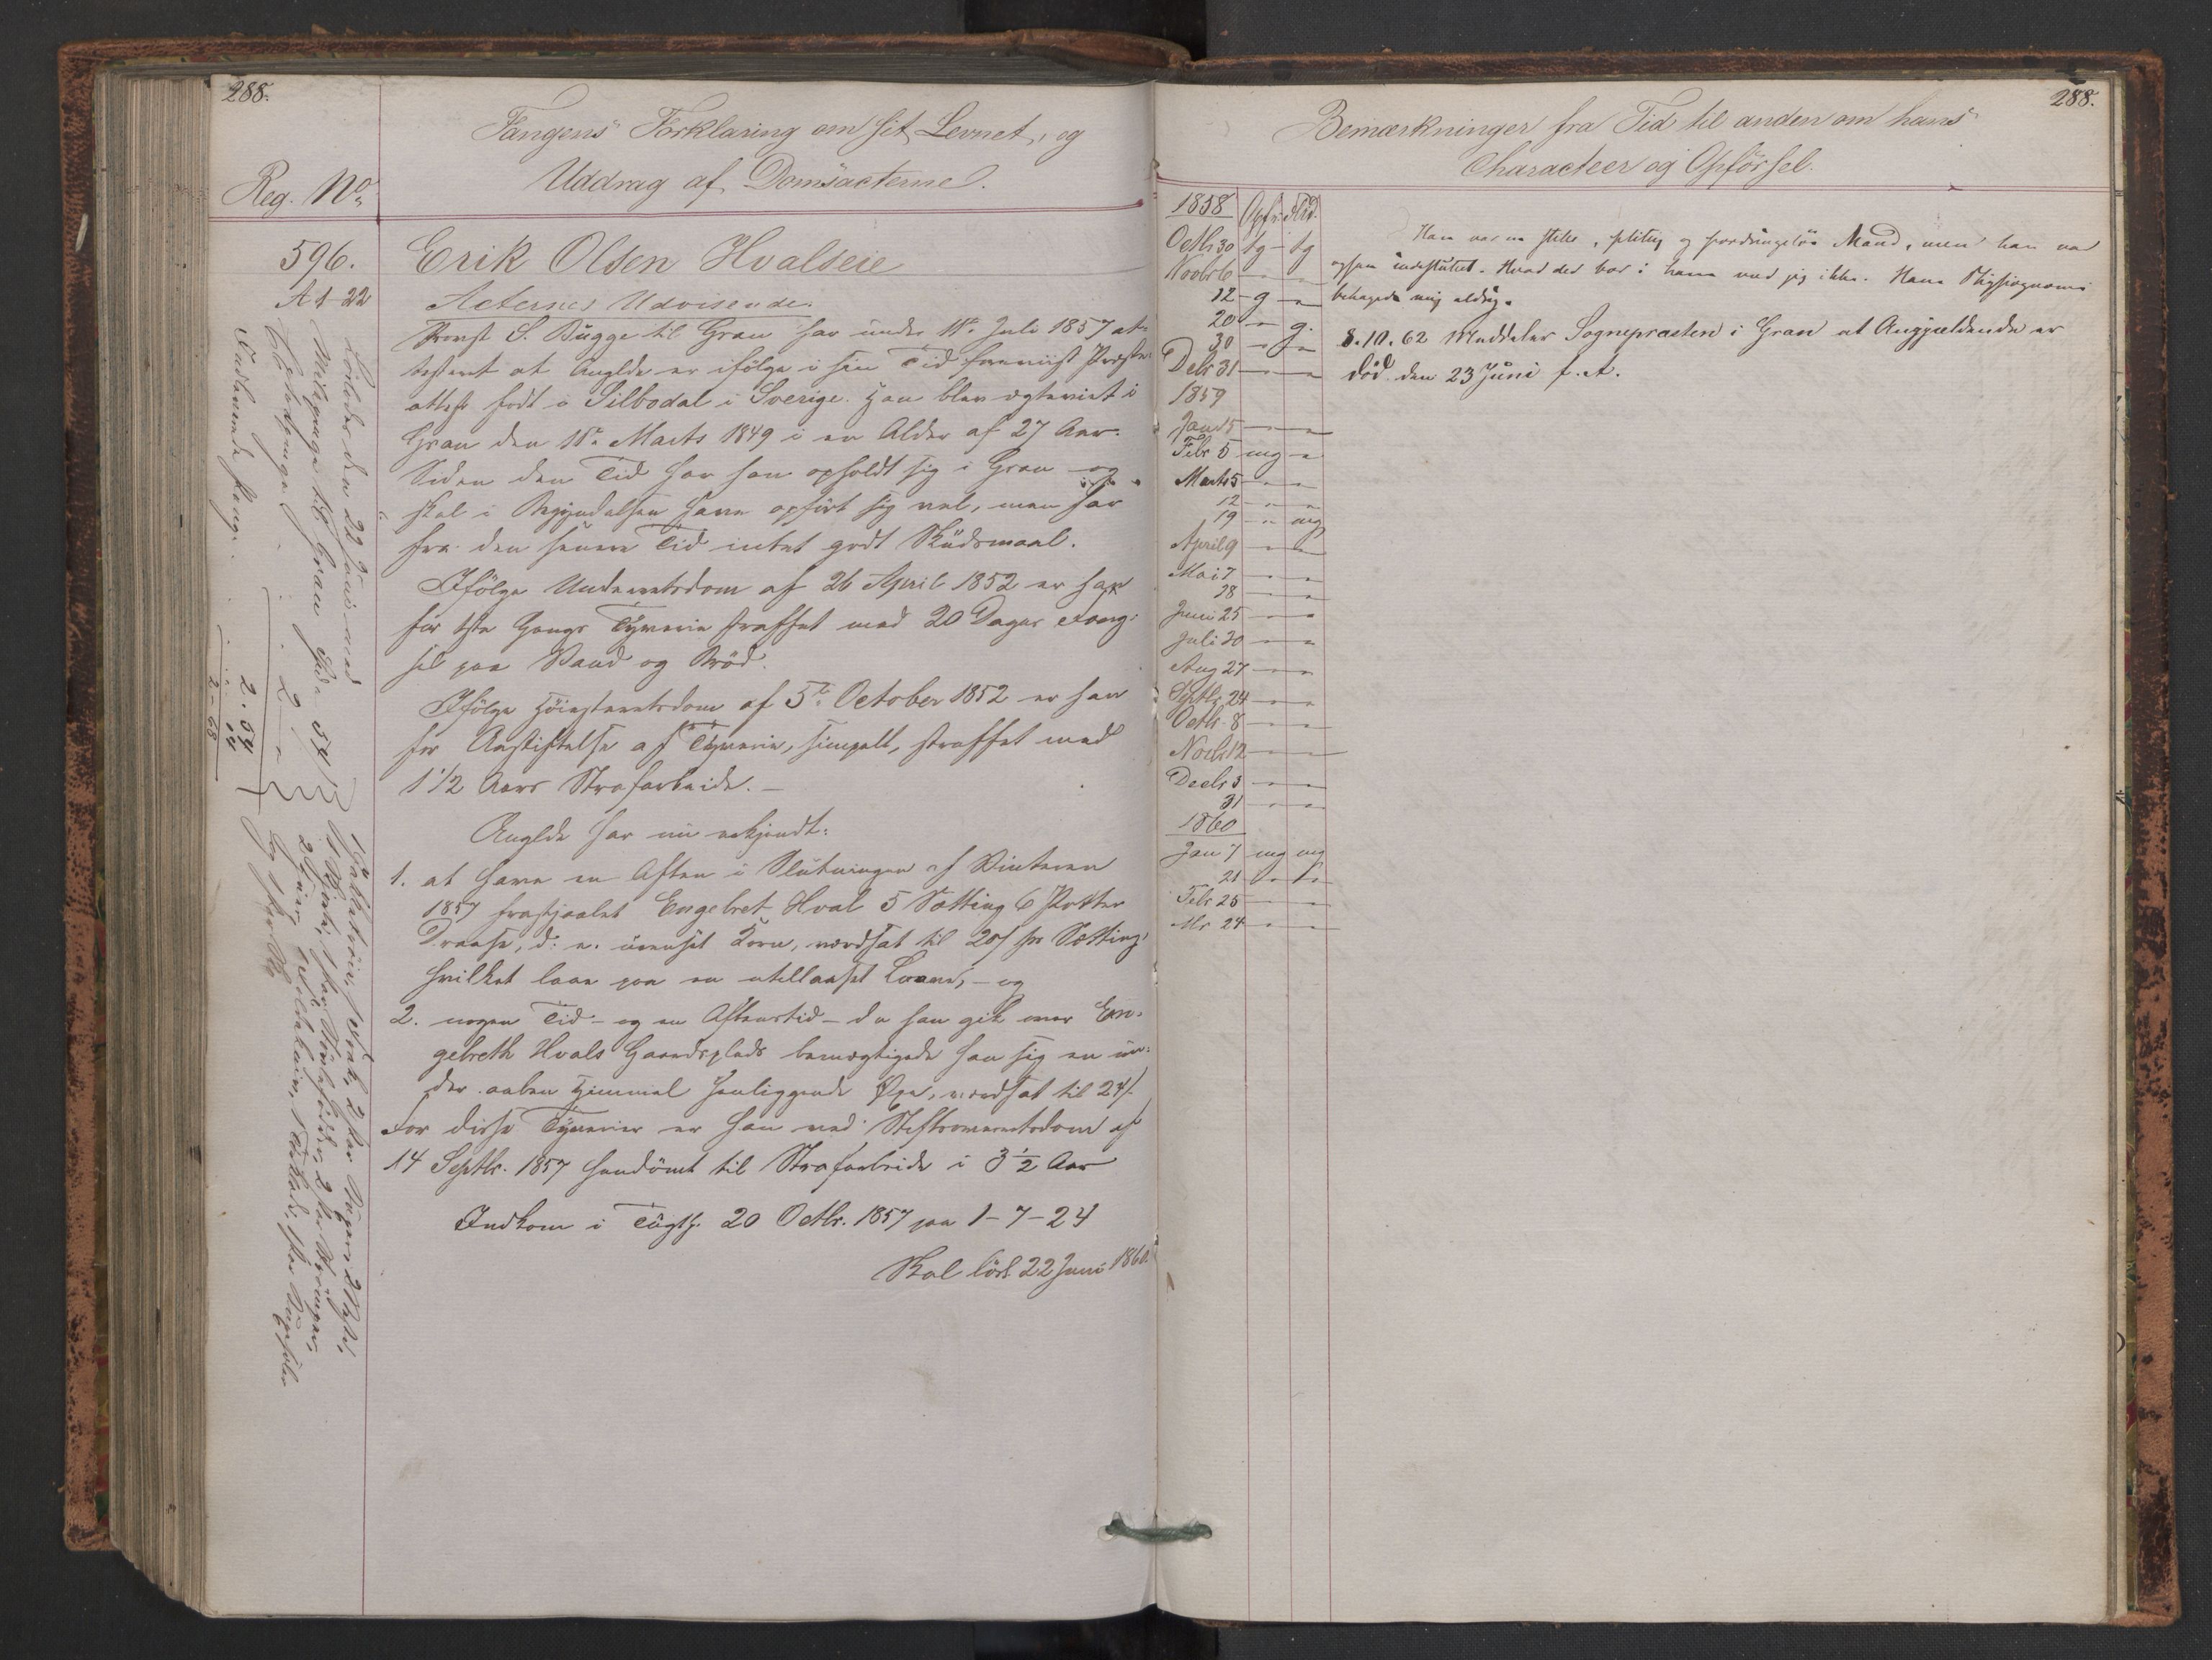 288.
Fangens Forklaring om sit Levnet, og
Uddrag af Domsacterne.
Reg. No.
596.
A 1-22
Erik Olsen Hvalseie
Acternes Udvisende.
Provst S. Bugge til Gran har under 11te Juli 1857 at-
testeret at Anglde er ifølge i sin Tid foreviist Præste-
attest født i Silbodal i Sverige. Han blev ægteviet i
Gran den 11te Marts 1849 i en Alder af 27 Aar.
Siden den Tid har han opholdt sig i Gran og
skal i Begyndelsen have opført sig vel, men har
fra den senere Tid intet godt Skudsmaal.
Ifølge Underretsdom af 26 April 1852 er han
for 1ste Gangs Tyverie straffet med 20 Dages Fæng-
sel paa Vand og Brød.
Ifølge Høiesteretsdom af 5te October 1852 er han
for Anstiftelse af Tyverie, simpelt, straffet med
1 1/2 Aars Strafarbeide. —
Anglde har nu vekjendt:
1. at have en Aften i Slutningen af Vinteren
1857 frastjaalet Engebret Hval 5 Sætting 6 Potter
Draase, d: e. urenset Korn, værdsat til 20 s pr Sætting,
hvilket laae paa en uaflaaset Laave, — og
2. nogen Tid — og en Aftenstid — da han gik over En-
gebreth Hvals Gaardsplads bemægtigede han sig en un-
der aaben Himmel henliggende Øxe, værdsat til 24 s.
For disse Tyverier er han ved Stiftsoverretsdom af
14 Septbr. 1857 handømt til Strafarbeide i 3 1/2 Aar
Indkom i Tugth. 20 Octbr. 1857 paa 1-7-24
Skal løsl. 22 Juni 1860.
Løslades den 22 Juni med
Reisepenge til Gran
54
2 -
2. 54
14
2 - 68
288.
Bemærkninger fra Tid til anden om hans
Characteer og Opførsel.
1858 Opf. Flid.
Octb 30 tg - tg
Novbr 6 - -
12 - g -
20 - g.
30 - -
Decbr 31 - -
1859
Jan 15 - -
Febr 5 mg -
Marts 5 - -
12 - -
19 - mg
April 9 - -
Mai 7 - -
28 - -
Juni 25 - -
Juli 30 - -
Aug 27 - -
Septbr 24 - -
Octbr 8 - -
Novb 12 - -
Decbr 3 - -
31 - -
1860
Jan 7 mg mg
21 - -
Febr 25 - -
Mr 24 - -
Han var en stille, flittig og fordringsløs Mand, men han var
ogsaa indesluttet. Hvad der bor i ham ved jeg ikke. Hans Physiognomi
behagede mig aldrig.
8.10.62 Meddeler Sognepræsten i Gran at Angjældende er
død den 23 Juni f. A.